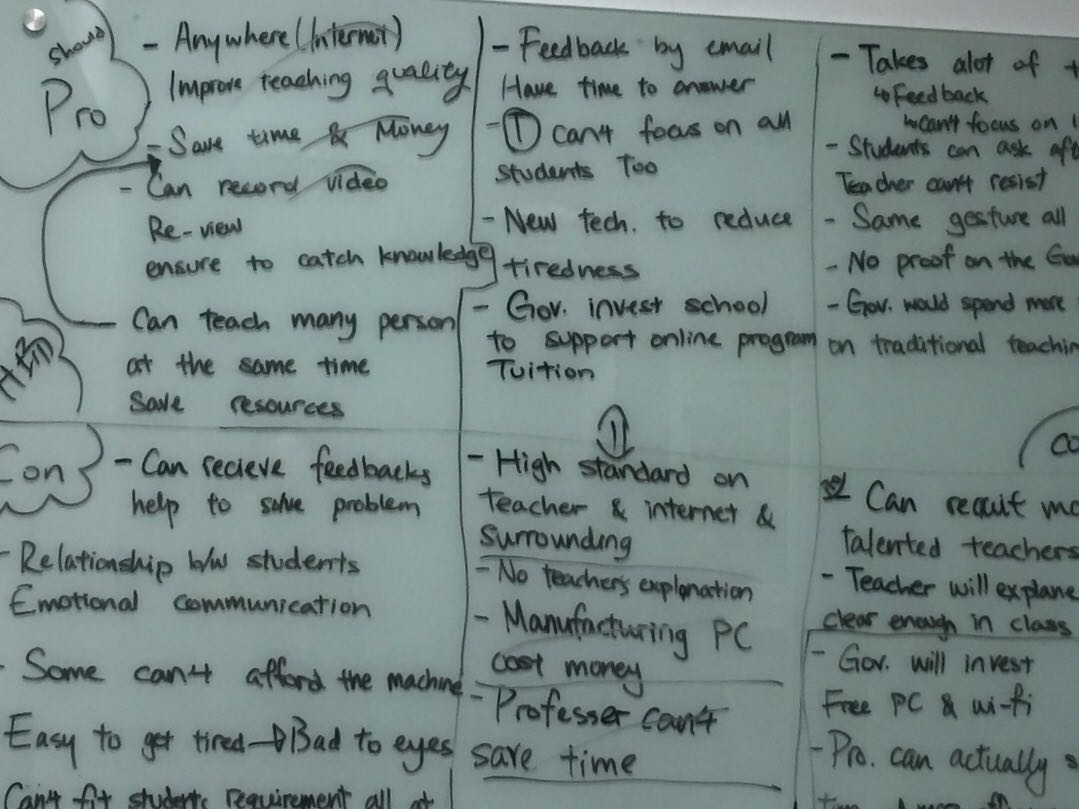 should
Pro
- Anywhere (Internet)
Improve teaching quality
- Save time & Money
- Can record video
Re-view
ensure to catch knowledge
Can teach many person
at the same time
Save resources
- Feedback by email
Have time to answer
- ① can't focus on all
students Too
- New tech. to reduce
tiredness
- Gov. invest school
to support online program
Tuition
- Takes alot of
↳ Feedback
↳ can't focus on
- Students can ask
Teacher can't resist
- Same gesture all
- No proof on the
- Gov. would spend more
on traditional
Con
- Can recieve feedbacks
help to solve problem
- Relationship b/w students
Emotional communication
- Some can't afford the machine
Easy to get tired → Bad to eyes
Can't fit students requirement all at
①
- High standard on
teacher & internet &
surrounding
- No teacher's explanation
- Manufacturing PC
cost money
- Professer can't
save time
co
Can requit
talented teachers
- Teacher will explane
clear enough in class
- Gov. will invest
Free PC & wi-fi
- Pro. can actually